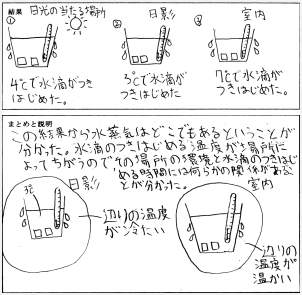 結果 日光の当たる場所
①
② 日影
③ 室内
4℃で水滴がつき
はじめた。
3℃で水滴が
つきはじめた
7℃で水滴が
つきはじめた。
まとめと説明
この結果から水蒸気はどこでもあるということが
分かった。水滴のつきはじめる温度が場所に
よってちがうのでその場所の環境と水滴のつきはじ
める時間には何らかの関係があるこ
とが分かった。
日影
3℃
辺りの温度
が冷たい
室内
辺りの
温度が
温かい